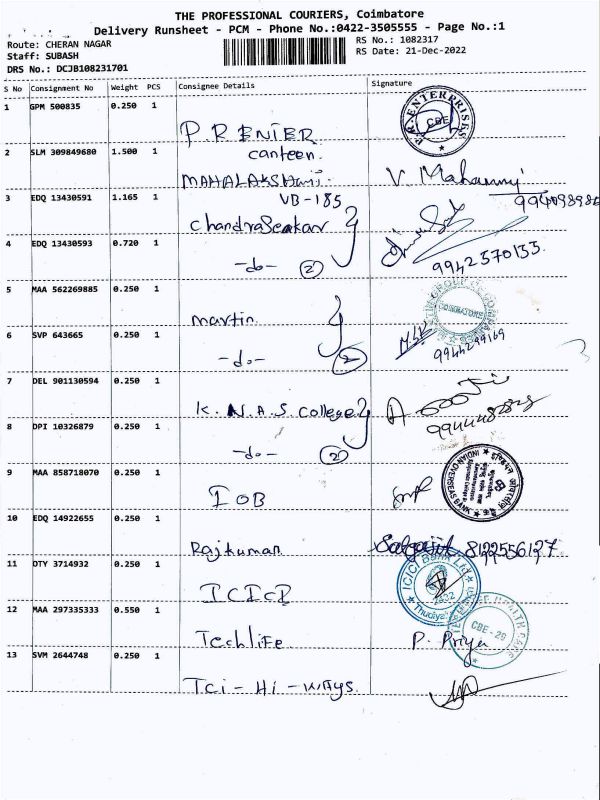 THE PROFESSIONAL COURIERS, Coimbatore
Delivery Runsheet - PCM - Phone No.:0422-3505555 - Page No.:1
Route: CHERAN NAGAR
RS No.: 1082317
Staff: SUBASH
RS Date: 21-Dec-2022
DRS No.: DCJB108231701
S No Consignment No Weight PCS Consignee Details Signature
1 GPM 500835 0.250 1
P.R.ENTERPRISES CBE
P.R ENIER
canteen.
2 SLM 309849680 1.500 1
MAHALAKSHmi. V.
3 EDQ 13430591 1.165 1 VB-185
ChandraSeakar
4 EDQ 13430593 0.720 1
-do- 2 9942570133.
5 MAA 562269885 0.250 1
martin.
6 SVP 643665 0.250 1
-do- 2 9944299169
7 DEL 901130594 0.250 1
K.N.A.S. College
8 DPI 10326879 0.250 1
-do- 2
9 MAA 858718070 0.250 1
IOB
INDIAN OVERSEAS BANK
10 EDQ 14922655 0.250 1
Rajkumar 8122556127
11 DTY 3714932 0.250 1
ICICI
ICICI Bank Ltd
12 MAA 297335333 0.550 1
CBE-29
Techlife P. Priya
13 SVM 2644748 0.250 1
Tci-Hi-ways.